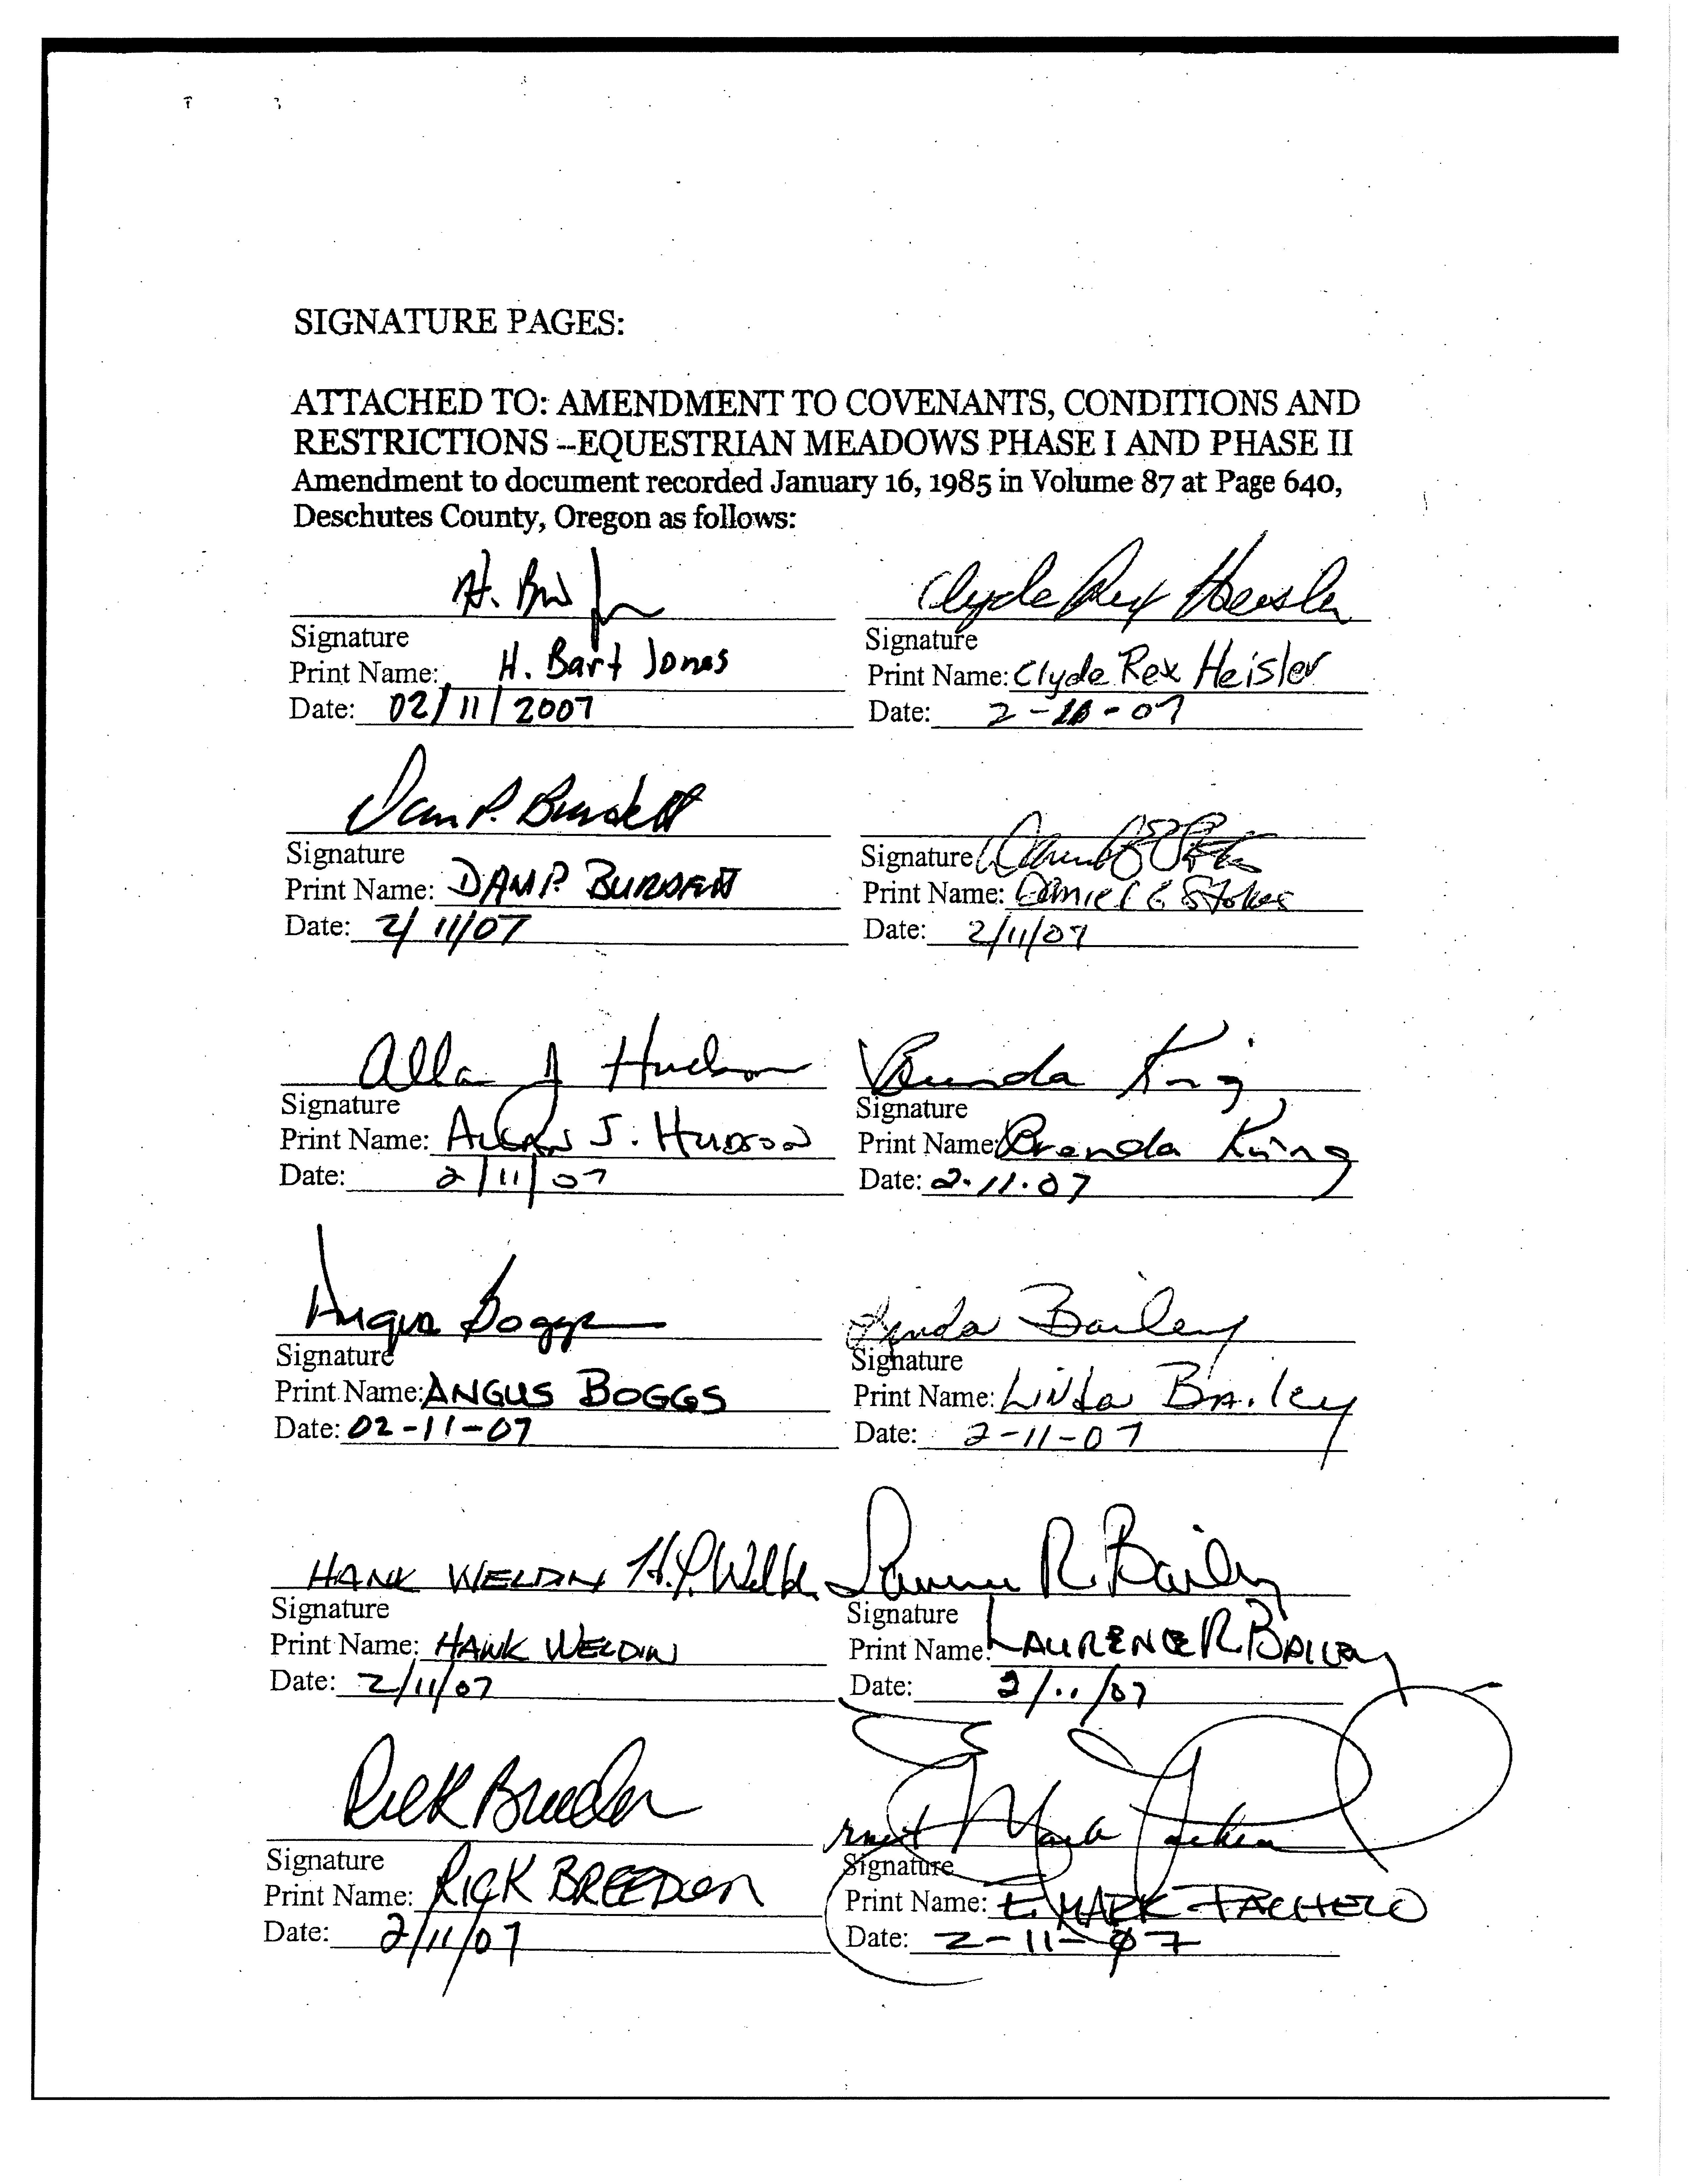 SIGNATURE PAGES:
ATTACHED TO: AMENDMENT TO COVENANTS, CONDITIONS AND
RESTRICTIONS --EQUESTRIAN MEADOWS PHASE I AND PHASE II
Amendment to document recorded January 16, 1985 in Volume 87 at Page 640,
Deschutes County, Oregon as follows:
H. Clyde Rex Heisler
Signature Signature
Print Name: H. Bart Jones Print Name: Clyde Rex Heisler
Date: 02/11/2007 Date: 2-07
Dan P. Burdett
Signature Signature
Print Name: DAN P. BURDETT Print Name: Daniel E Stokes
Date: 2/11/07 Date: 2/11/07
Allan J Hudson Brenda King
Signature Signature
Print Name: ALLAN J. HUDSON Print Name: Brenda King
Date: 2/11/07 Date: 2.11.07
Angus Boggs Linda Bailey
Signature Signature
Print Name: ANGUS BOGGS Print Name: Linda Bailey
Date: 02-11-07 Date: 2-11-07
HANK WELDIN Laurence R. Bailey
Signature Signature
Print Name: HANK WELDIN Print Name: LAURENCE R BAILEY
Date: 2/11/07 Date: 2/11/07
Rick Breeden Mark
Signature Signature
Print Name: RICK BREEDEN Print Name: E. MARK PACHECO
Date: 2/11/07 Date: 2-11-07